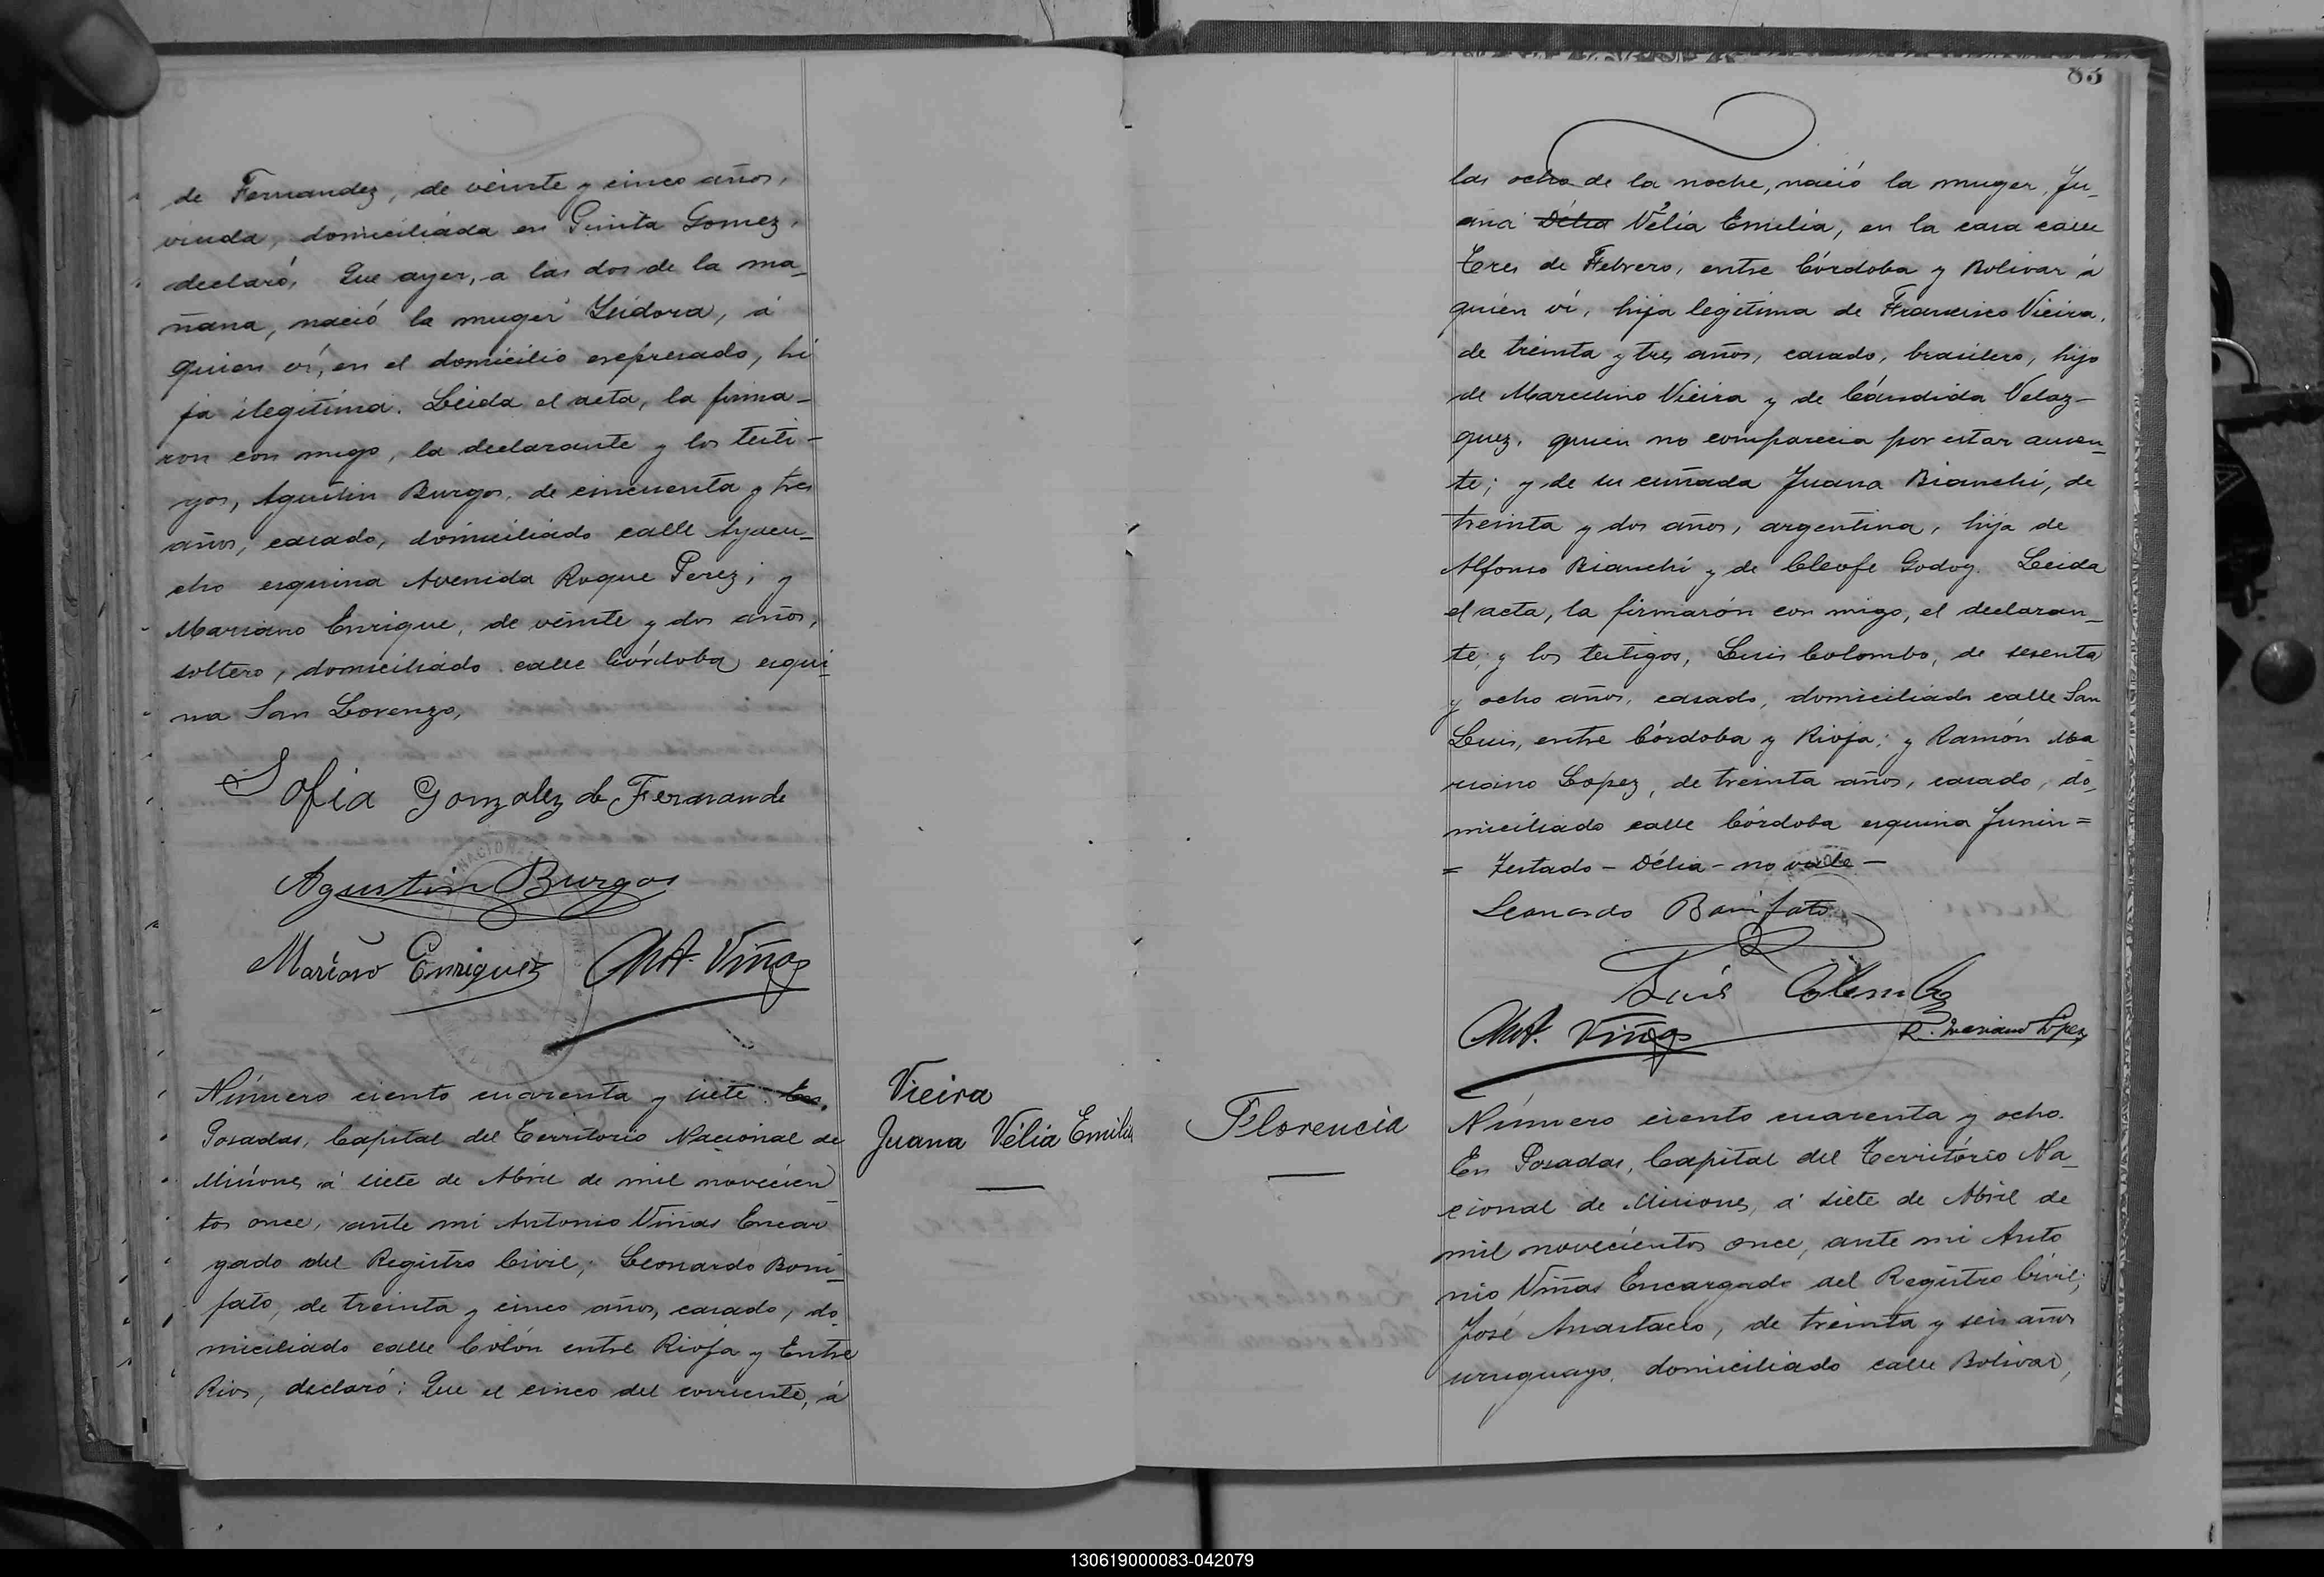 de Fernandez, de veinte y cinco años,
viuda, domiciliada en Quinta Gomez,
declaró, Que ayer, a las dos de la ma_
ñana, nació la muger Isidora, á
quien ví, en el domicilio espresado, hi
ja ilegitima. Leida el acta, la firma-
ron con migo, la declarante y los testi-
gos, Agustin Burgos, de cincuenta y tres
años, casado, domiciliado calle Ayacu_
cho esquina Avenida Roque Perez; y
Mariano Enrique, de veinte y dos años,
soltero, domiciliado calle Córdoba esqui_
na San Lorenzo,
Sofia Gonzalez de Fernande
Agustin Burgos
Mariano Enriquez Ant. Viñas
Número ciento cuarenta y siete. En,
Posadas, Capital del Territorio Nacional de
Misiones á siete de Abril de mil novecien_
tos once, ante mi Antonio Viñas Encar
gado del Registro Civil; Leonardo Boni_
fato, de treinta y cinco años, casado, do_
miciliado calle Colón entre Rioja y Entre
Rios, declaró: Que el cinco del corriente, á
Vieira
Juana Vélia Emilia
83
las ocho de la noche, nació la muger, Ju_
ana Délia Vélia Emilia, en la casa calle
Tres de Febrero, entre Córdoba y Bolivar á
quien ví, hija legitima de Francisco Vieira,
de treinta y tres años, casado, brasilero, hijo
de Marcelino Vieira y de Cándida Velaz-
quez, quien no comparecia por estar ausen_
te; y de su cuñada Juana Bianchi, de
treinta y dos años, argentina, hija de
Alfonso Bianchi y de Cleofe Godoy. Leida
el acta, la firmarón con migo, el declaran_
te, y los testigos, Luis Colombo, de sesenta
y ocho años, casado, domiciliado calle San
Luis, entre Córdoba y Rioja; y Ramón Ma
riano Lopez, de treinta años, casado, do_
miciliado calle Córdoba esquina Junin=
= Testado - Délia - no vale -
Leonardo Bonifato
Luis Colombo
Ant. Viñas R. Mariano Lopez
Florencia
Número ciento cuarenta y ocho.
En Posadas, Capital del Território Na_
cional de Misiones, á siete de Abril de
mil novecientos once, ante mi Anto
nio Viñas Encargado del Registro Civil;
José Anastacio, de treinta y seis años
uruguayo, domiciliado calle Bolivar,
130619000083-042079